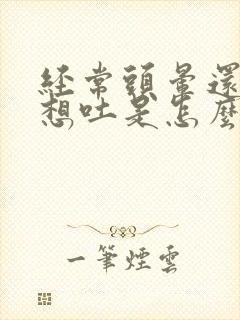 經常頭暈還
想吐是怎麼
一筆煙雲